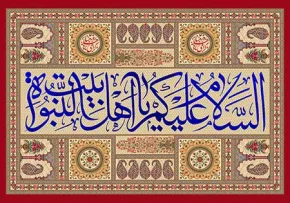 السلام عليكم يا أهل بيت النبوة